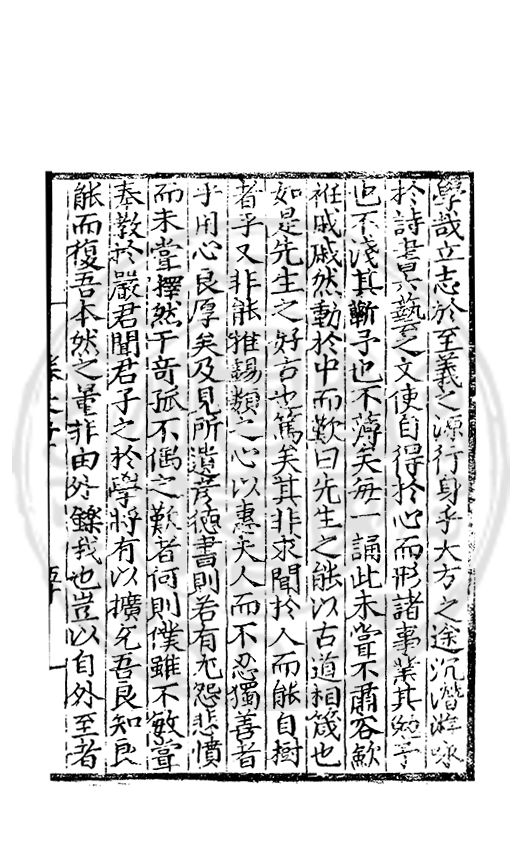 學哉立志於至義之源行身乎大方之途沉潛游泳
於詩書六藝之文使自得於心而形諸事業其勉予
也不淺其蘄予也不薄矣每一誦此未嘗不肅容歛
袵戚戚然動於中而歎曰先生之能以古道相箴也
如是先生之好古也篤矣其非求聞於人而能自樹
者乎又非能推錫類之心以惠夫人而不忍獨善者
乎用心良厚矣及見所遺彦德書則若有尤怨悲憤
而未嘗擇然于奇孤不偶之歎者何則僕雖不敏嘗
奉教於嚴君聞君子之於學將有以擴充吾良知良
能而復吾本然之量非由外鑠我也豈以自外至者